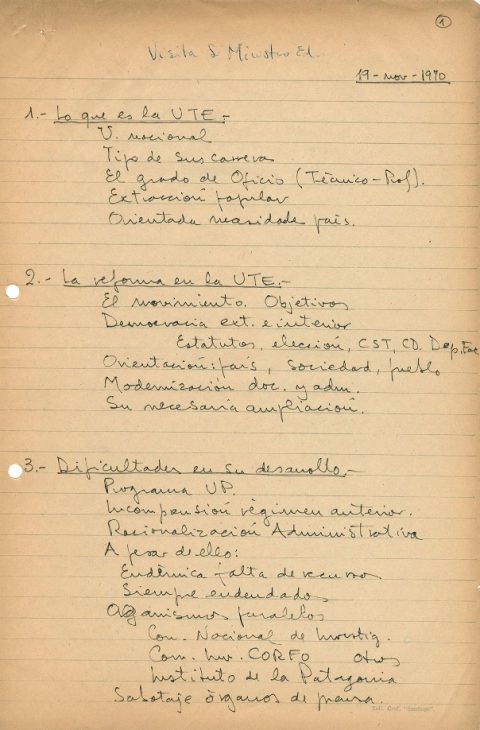 1
Visita S Ministro Ed.
19-nov-1970
1.- Lo que es la UTE.-
U. nacional
Tipo de sus carreras
El grado de Oficio (Técnico-Prof).
Extracción popular
Orientada necesidades país.
2.- La reforma en la UTE.-
El movimiento. Objetivos
Democracia ext. e interior
Estatutos, elección, CST, CD, Dep. Fac
Orientación: país, sociedad, pueblo
Modernización doc. y adm.
Su necesaria ampliación.
3.- Dificultades en su desarollo.-
Programa UP.
Incomprensión régimen anterior.
Racionalización Administrativa
A pesar de ello:
Endémica falta de recursos
Siempre endeudados
Organismos paralelos
Com. Nacional de Investig.
Com. Inv. CORFO otros
Instituto de la Patagonia
Sabotaje órganos de prensa.